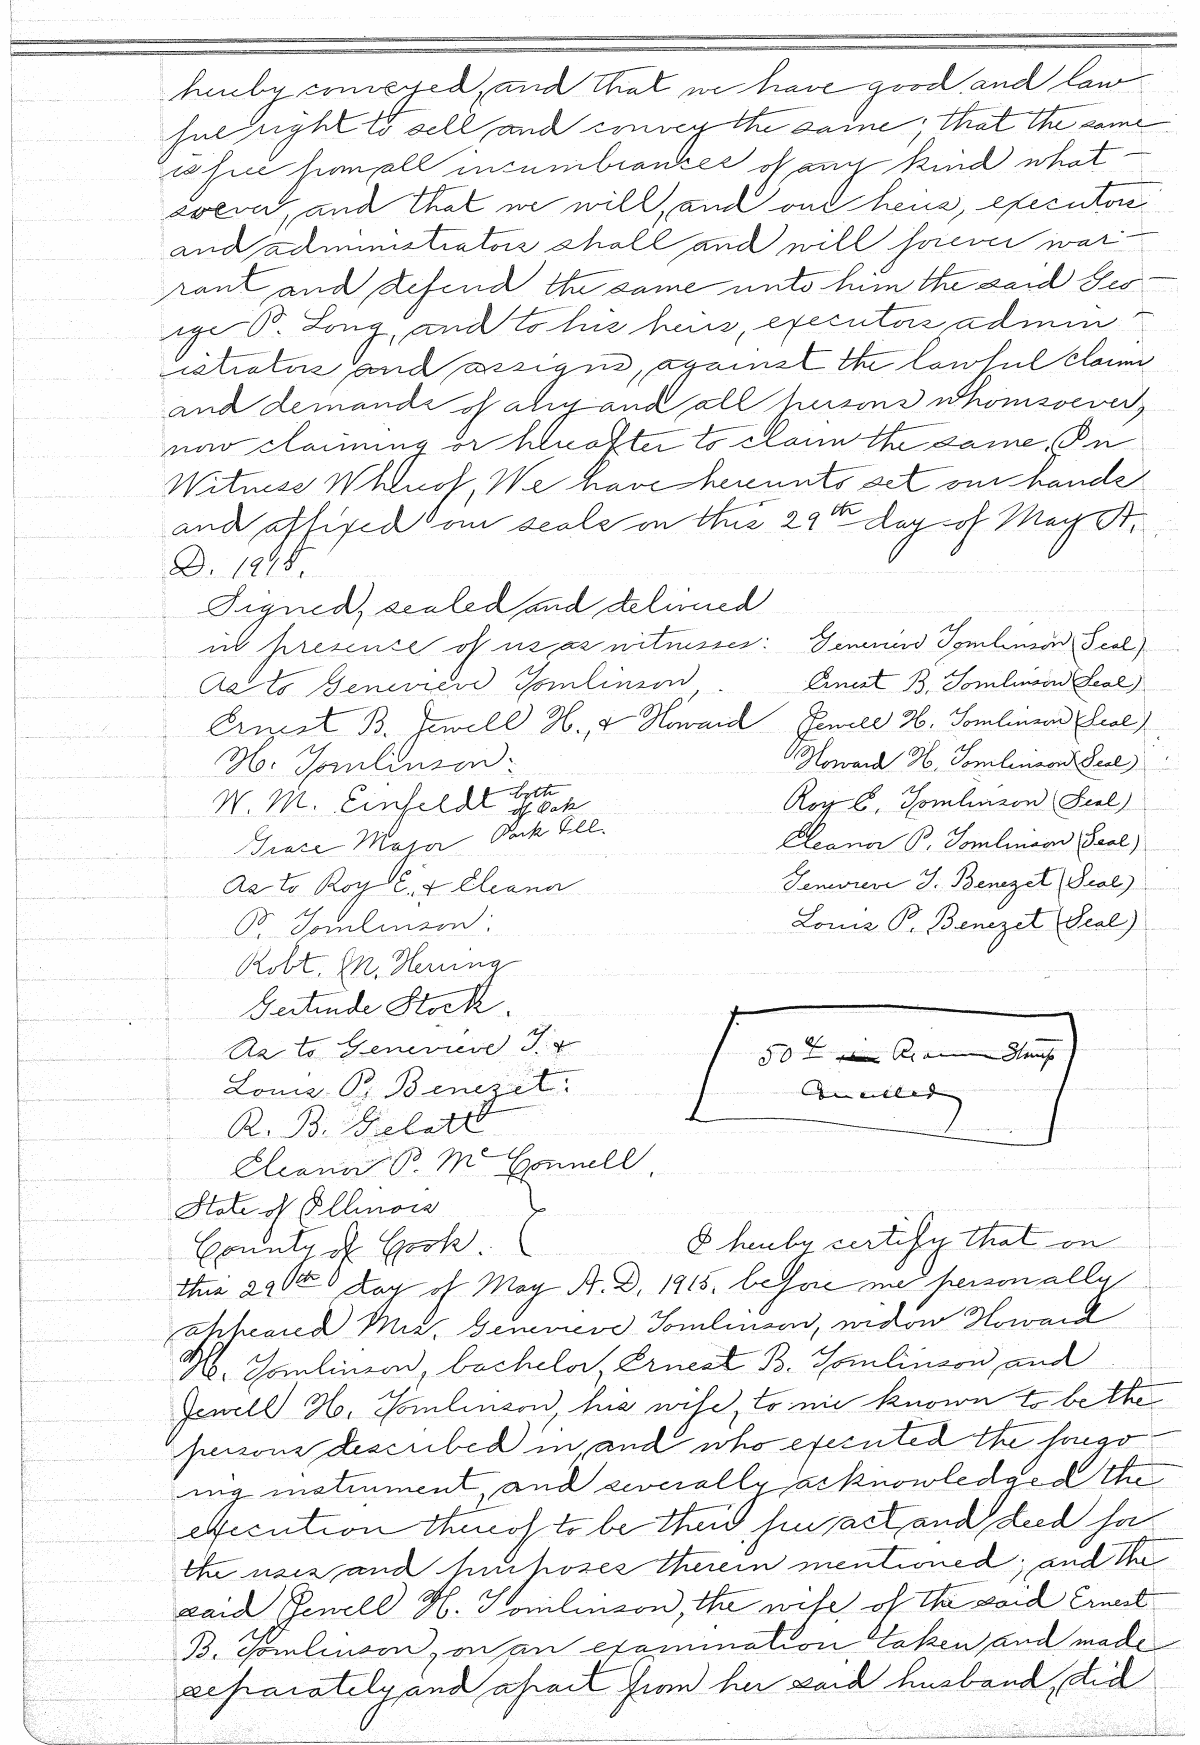 hereby conveyed, and that we have good and law
ful right to sell and convey the same; that the same
is free from all incumbrances of any kind what-
soever, and that we will, and our heirs, executors
and administrators shall and will forever war-
rant and defend the same unto him the said Geo-
rge P. Long, and to his heirs, executors, admin-
istrators and assigns, against the lawful claims
and demands of any and all persons whomsoever,
now claiming or hereafter to claim the same. In
Witness Whereof, We have hereunto set our hands
and affixed our seals on this 29th day of May A.
D. 1915.
Signed, sealed and delivered
in presence of us as witnesses: Genevieve Tomlinson (Seal)
As to Genevieve Tomlinson, Ernest B. Tomlinson (Seal)
Ernest B. Jewell H., & Howard Jewell H. Tomlinson (Seal)
H. Tomlinson: Howard H. Tomlinson (Seal)
W. M. Einfeldt both of Oak Park Ill. Roy E. Tomlinson (Seal)
Grace Major Eleanor P. Tomlinson (Seal)
As to Roy E. & Eleanor Genevieve T. Benezet (Seal)
P. Tomlinson: Louis P. Benezet (Seal)
Robt. M. Herring
Gertrude Stock.
As to Genevieve T. &
Louis P. Benezet:
R. B. Gelatt
Eleanor P. McConnell.
50¢ in Revenue Stamp
Cancelled
State of Illinois
County of Cook. I hereby certify that on
this 29th day of May A.D. 1915. before me personally
appeared Mrs. Genevieve Tomlinson, widow Howard
H. Tomlinson, bachelor, Ernest B. Tomlinson and
Jewell H. Tomlinson, his wife, to me known to be the
persons described in, and who executed the forego-
ing instrument, and severally acknowledged the
execution thereof to be their free act and deed for
the uses and purposes therein mentioned; and the
said Jewell H. Tomlinson, the wife of the said Ernest
B. Tomlinson, on an examination taken and made
separately and apart from her said husband, did